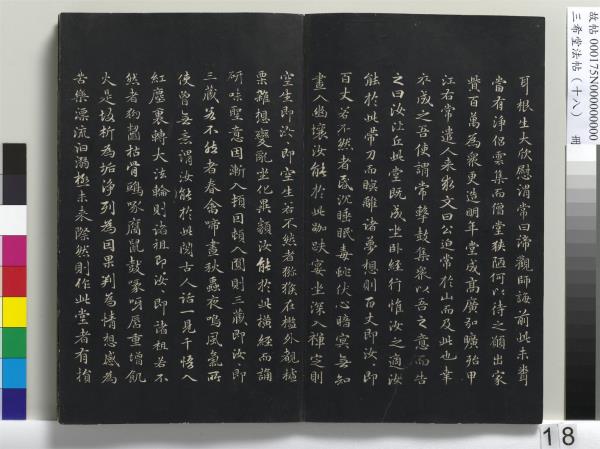 耳根生大欣慰謂常曰諦觀師誨前此未聞
當有淨侶雲集而僧堂狹陋何以待之願出家
貲百萬為衆更造明年堂成高廣弘曠殆甲
江右常遣人來求文曰公迫常於山而及此也幸
卒成之吾使謂常擊鼓集衆以吾之意而告
之曰汝比丘此堂既成坐卧經行惟汝之適汝
能於此帶刀而瞑離諸夢想則百丈即汝即
百丈若不然者昏沉睡眠毒蛇伏心暗冥無知
晝入幽壤汝能於此跏趺宴坐深入禪定則
空生即汝即空生若不然者猕猴在檻外觀樝
栗雜想變亂坐化異類汝能於此橫經而誦
研味聖意因漸入頓因頓入圓則三藏即汝即
三藏若不然者春禽啼晝秋蟲夜鳴風氣所
使曾無意謂汝能於此閱古人話一見千悟入
紅塵裏轉大法輪則諸祖即汝即諸祖若不
然者狗齧枯骨鴟啄腐鼠鼓喙呀脣重增飢
火是故析為垢淨列為因果判為情想感為
苦樂漂流汨溺極未來際然則作此堂者有損
故帖 000175N000000000
三希堂法帖（十八） 冊
18